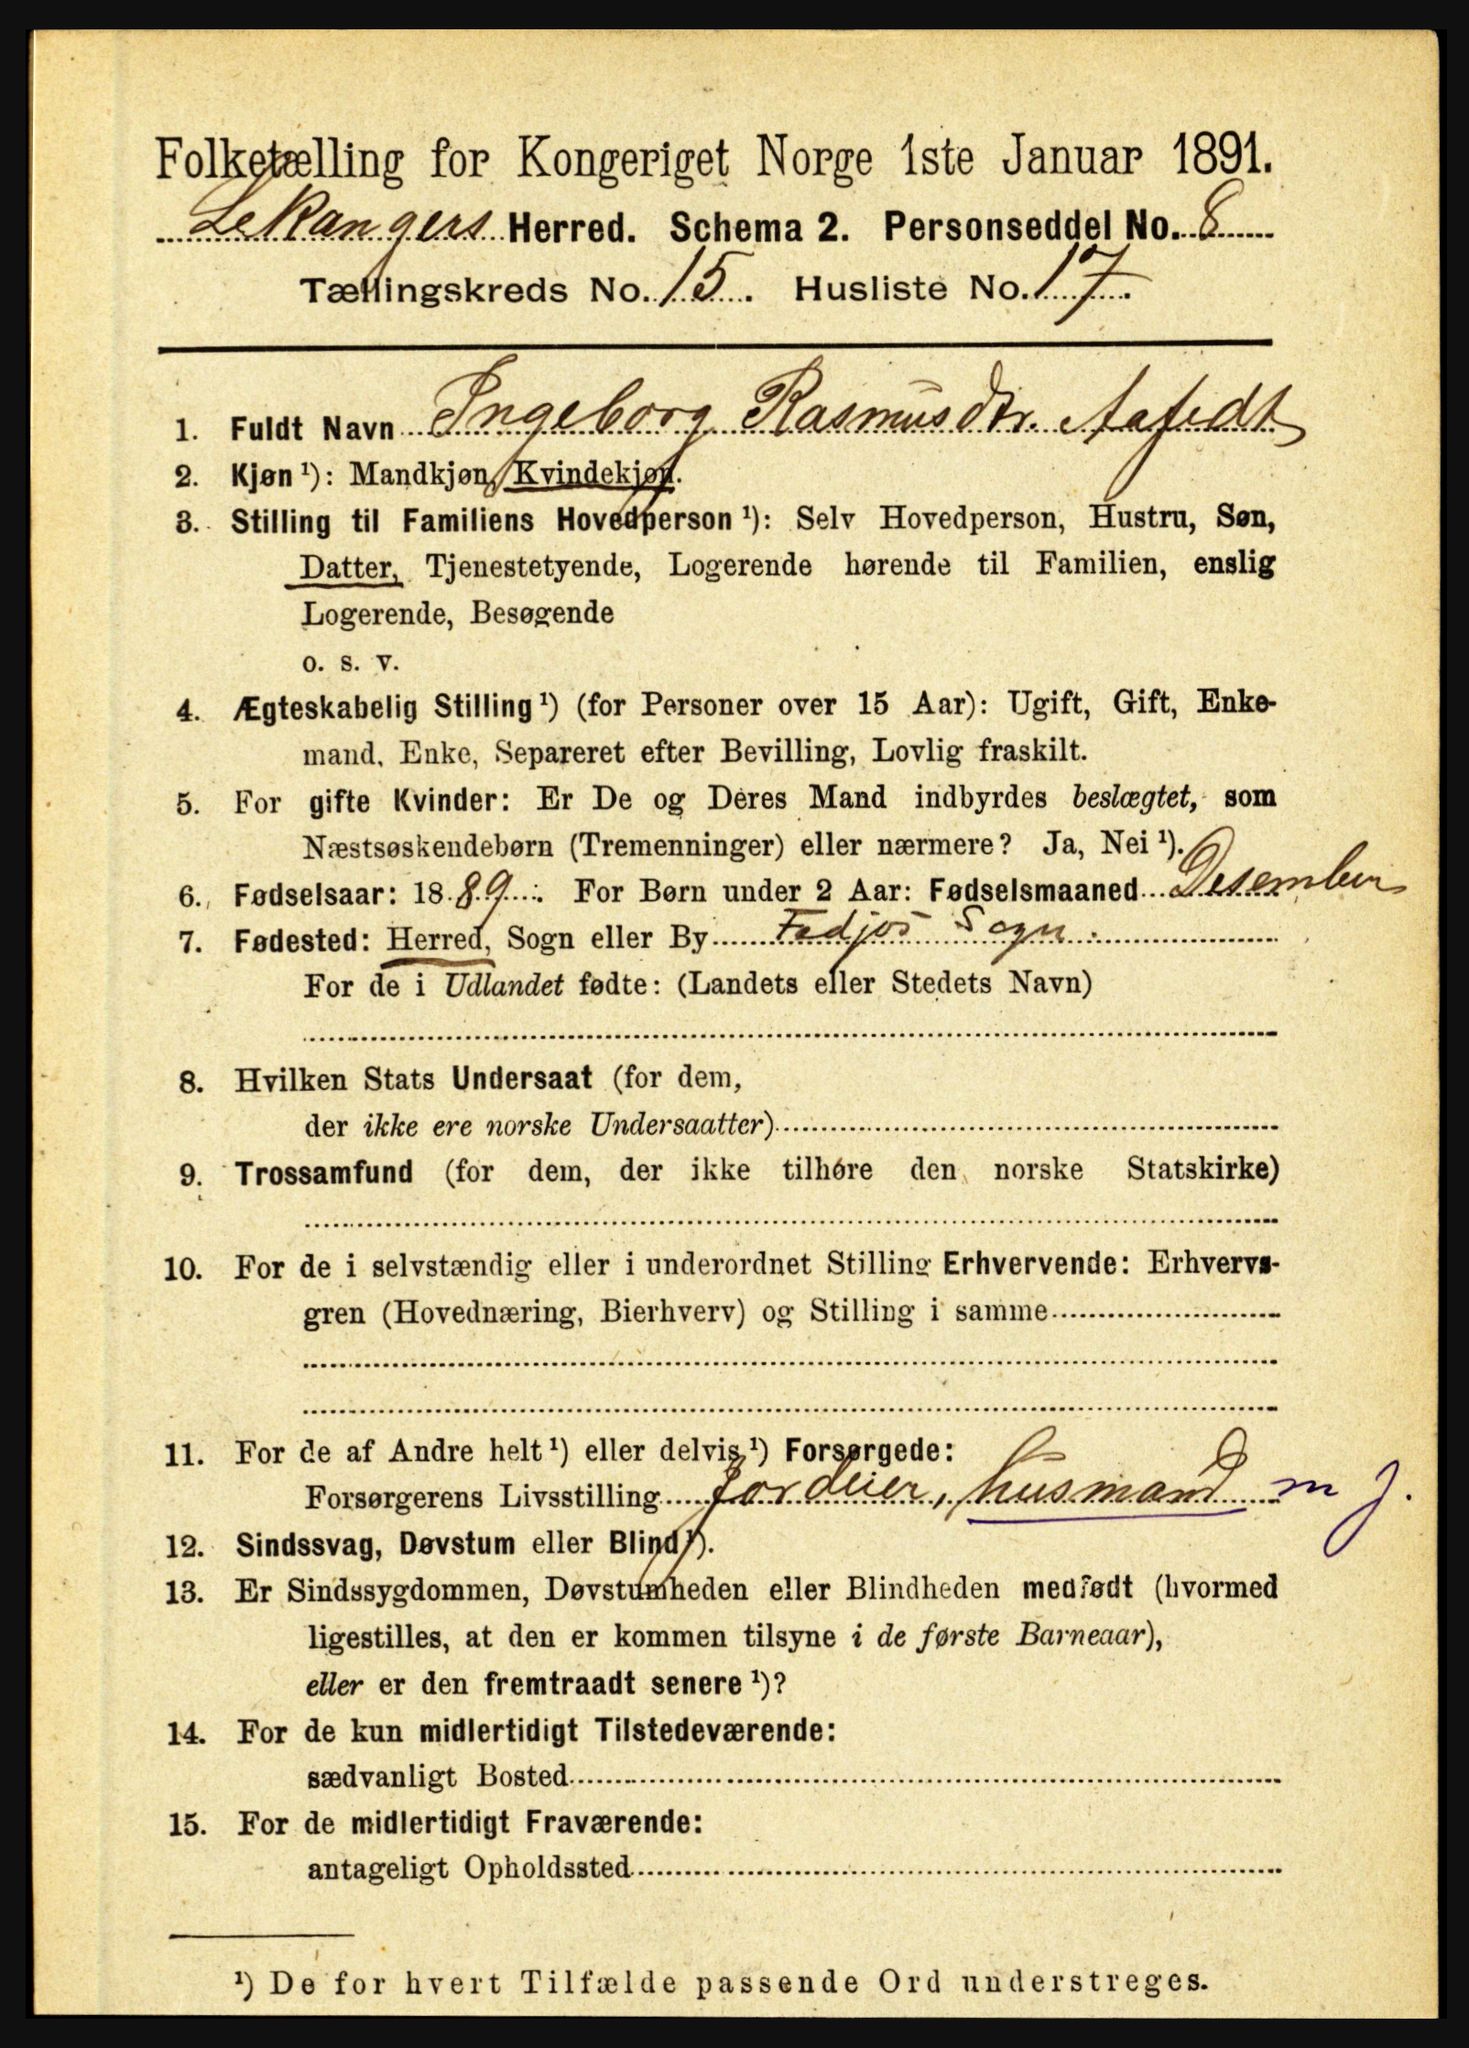 Folketælling for Kongeriget Norge 1ste Januar 1891.
Lekangers Herred. Schema 2. Personseddel No. 8
Tællingskreds No. 15. Husliste No. 17.
1. Fuldt Navn Ingeborg Rasmusdtr. Aafedt
2. Kjøn ¹): Mandkjøn, Kvindekjøn.
3. Stilling til Familiens Hovedperson ¹): Selv Hovedperson, Hustru, Søn,
Datter, Tjenestetyende, Logerende hørende til Familien, enslig
Logerende, Besøgende
o. s. v.
4. Ægteskabelig Stilling ¹) (for Personer over 15 Aar): Ugift, Gift, Enke-
mand, Enke, Separeret efter Bevilling, Lovlig fraskilt.
5. For gifte Kvinder: Er De og Deres Mand indbyrdes beslægtet, som
Næstsøskendebørn (Tremenninger) eller nærmere? Ja, Nei ¹).
6. Fødselsaar: 1889. For Børn under 2 Aar: Fødselsmaaned Desember
7. Fødested: Herred, Sogn eller By Fedjos Sogn.
For de i Udlandet fødte: (Landets eller Stedets Navn)
8. Hvilken Stats Undersaat (for dem,
der ikke ere norske Undersaatter)
9. Trossamfund (for dem, der ikke tilhøre den norske Statskirke)
10. For de i selvstændig eller i underordnet Stilling Erhvervende: Erhvervs-
gren (Hovednæring, Bierhverv) og Stilling i samme
11. For de af Andre helt ¹) eller delvis ¹) Forsørgede:
Forsørgerens Livsstilling Jordeier, husmand m j.
12. Sindssvag, Døvstum eller Blind ¹).
13. Er Sindssygdommen, Døvstumheden eller Blindheden medfødt (hvormed
ligestilles, at den er kommen tilsyne i de første Barneaar),
eller er den fremtraadt senere ¹)?
14. For de kun midlertidigt Tilstedeværende:
sædvanligt Bosted
15. For de midlertidigt Fraværende:
antageligt Opholdssted
¹) De for hvert Tilfælde passende Ord understreges.